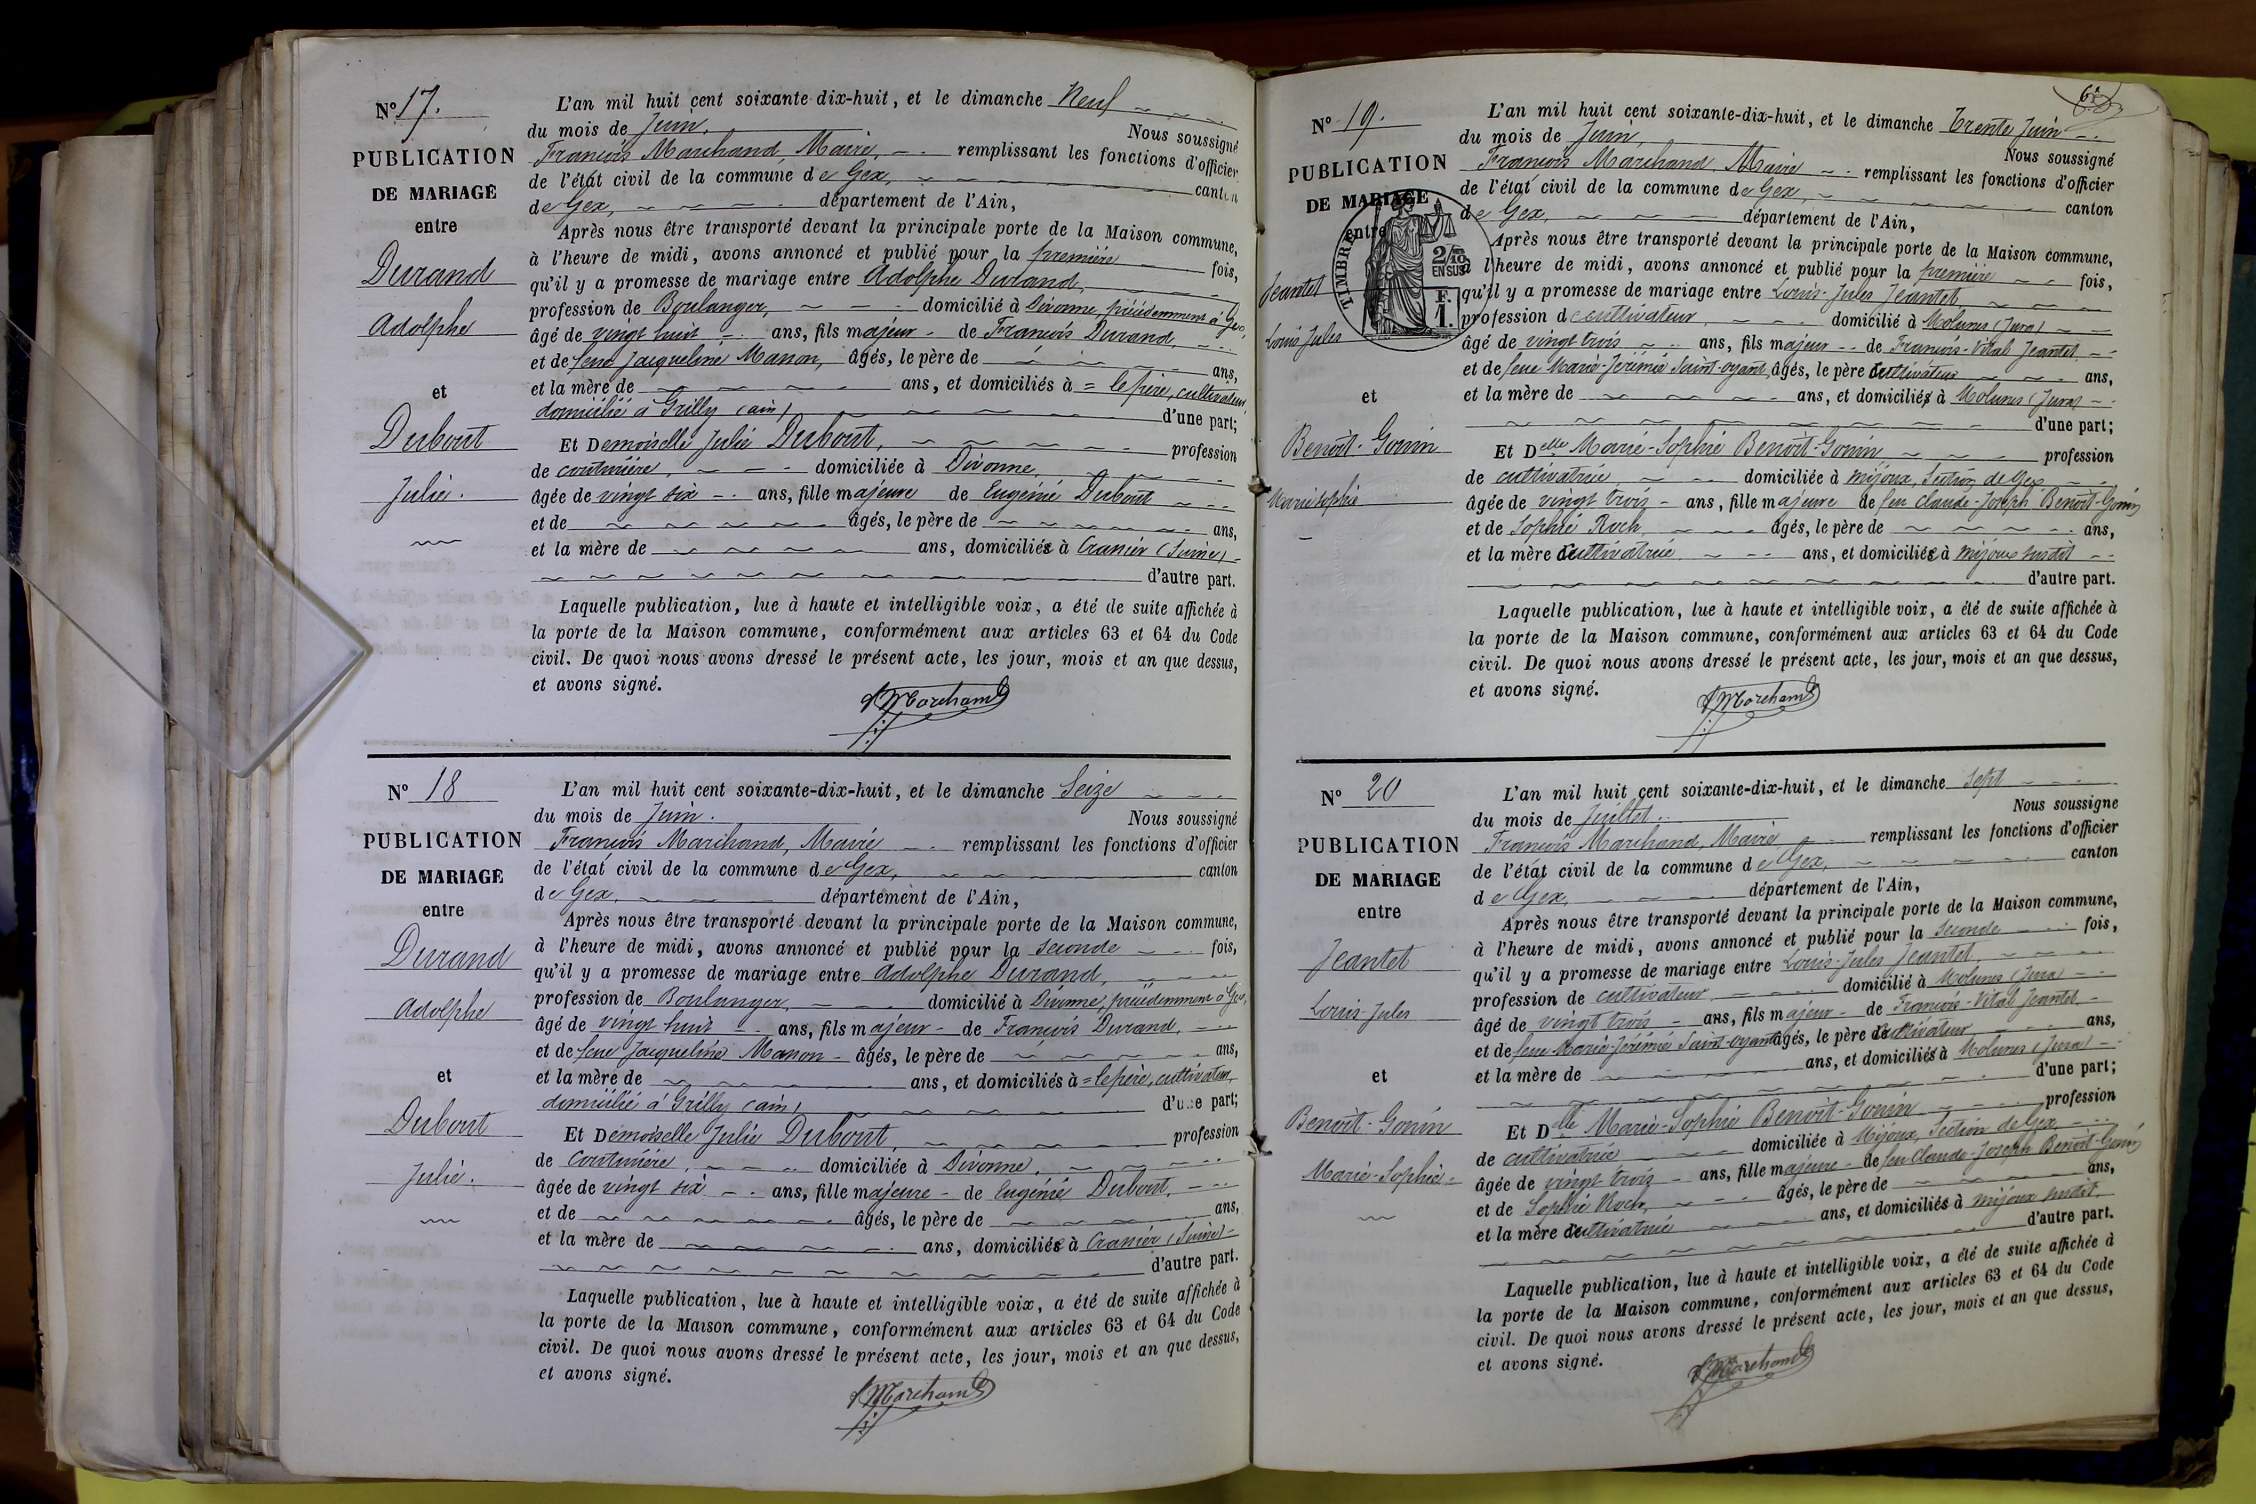 N° 17.
PUBLICATION
DE MARIAGE
entre
Durand
Adolphe
et
Dubout
Julie.
L'an mil huit cent soixante-dix-huit, et le dimanche Neuf
du mois de Juin. Nous soussigné
François Marchand, Maire, remplissant les fonctions d'officier
de l'état civil de la commune de Gex, canton
de Gex, département de l'Ain,
Après nous être transporté devant la principale porte de la Maison commune,
à l'heure de midi, avons annoncé et publié pour la première fois,
qu'il y a promesse de mariage entre Adolphe Durand,
profession de Boulanger, domicilié à Divonne, précédemment à Gex,
âgé de vingt huit ans, fils majeur de François Durand,
et de feue Jacqueline Manon, âgés, le père de ans,
et la mère de ans, et domiciliés à = le père, cultivateur,
domicilié à Grilly (ain) d'une part;
Et Demoiselle Julie Dubout, profession
de couturière, domiciliée à Divonne,
âgée de vingt six ans, fille majeure de Eugénie Dubout
et de âgés, le père de ans,
et la mère de ans, domiciliés à Cranier (Suisse)
d'autre part.
Laquelle publication, lue à haute et intelligible voix, a été de suite affichée à
la porte de la Maison commune, conformément aux articles 63 et 64 du Code
civil. De quoi nous avons dressé le présent acte, les jour, mois et an que dessus,
et avons signé.
Marchand
N° 18
PUBLICATION
DE MARIAGE
entre
Durand
Adolphe
et
Dubout
Julie.
L'an mil huit cent soixante-dix-huit, et le dimanche Seize
du mois de Juin. Nous soussigné
François Marchand, Maire remplissant les fonctions d'officier
de l'état civil de la commune de Gex, canton
de Gex, département de l'Ain,
Après nous être transporté devant la principale porte de la Maison commune,
à l'heure de midi, avons annoncé et publié pour la seconde fois,
qu'il y a promesse de mariage entre Adolphe Durand,
profession de Boulanger, domicilié à Divonne, précédemment à Gex,
âgé de vingt huit ans, fils majeur de François Durand,
et de feue Jacqueline Manon âgés, le père de ans,
et la mère de ans, et domiciliés à = le père, cultivateur,
domicilié à Grilly (ain) d'une part;
Et Demoiselle Julie Dubout, profession
de couturière, domiciliée à Divonne,
âgée de vingt six ans, fille majeure de Eugénie Dubout,
et de âgés, le père de ans,
et la mère de ans, domiciliés à Cranier (Suisse)
d'autre part.
Laquelle publication, lue à haute et intelligible voix, a été de suite affichée à
la porte de la Maison commune, conformément aux articles 63 et 64 du Code
civil. De quoi nous avons dressé le présent acte, les jour, mois et an que dessus,
et avons signé.
Marchand
N° 19.
PUBLICATION
DE MARIAGE
entre
TIMBRE
2/10
EN SUS
F.
1.
Jeantet
Louis Jules
et
Benoit-Gonin
Marie Sophie
L'an mil huit cent soixante-dix-huit, et le dimanche Trente Juin
du mois de Juin, Nous soussigné
François Marchand, Maire remplissant les fonctions d'officier
de l'état civil de la commune de Gex, canton
de Gex, département de l'Ain,
Après nous être transporté devant la principale porte de la Maison commune,
à l'heure de midi, avons annoncé et publié pour la première fois,
qu'il y a promesse de mariage entre Louis-Jules Jeantet,
profession de cultivateur, domicilié à Molunes (Jura)
âgé de vingt trois ans, fils majeur de François-Vital Jeantet
et de feue Marie-Jérémie Saint-oyant, âgés, le père cultivateur ans,
et la mère de ans, et domiciliés à Molunes (Jura)
d'une part;
Et Delle Marie-Sophie Benoit-Gonin profession
de cultivatrice domiciliée à Mijoux, Section de Gex
âgée de vingt trois ans, fille majeure de feu Claude-Joseph Benoit-Gonin
et de Sophie Roch, âgés, le père de ans,
et la mère cultivatrice ans, et domiciliés à Mijoux susdit
d'autre part.
Laquelle publication, lue à haute et intelligible voix, a été de suite affichée à
la porte de la Maison commune, conformément aux articles 63 et 64 du Code
civil. De quoi nous avons dressé le présent acte, les jour, mois et an que dessus,
et avons signé.
Marchand
N° 20
PUBLICATION
DE MARIAGE
entre
Jeantet
Louis-Jules
et
Benoit-Gonin
Marie-Sophie
L'an mil huit cent soixante-dix-huit, et le dimanche Sept
du mois de Juillet. Nous soussigné
François Marchand, Maire remplissant les fonctions d'officier
de l'état civil de la commune de Gex, canton
de Gex, département de l'Ain,
Après nous être transporté devant la principale porte de la Maison commune,
à l'heure de midi, avons annoncé et publié pour la seconde fois,
qu'il y a promesse de mariage entre Louis-Jules Jeantet,
profession de cultivateur, domicilié à Molunes (Jura)
âgé de vingt trois ans, fils majeur de François-Vital Jeantet
et de feue Marie-Jérémie Saint-oyant âgés, le père cultivateur ans,
et la mère de ans, et domiciliés à Molunes (Jura)
d'une part;
Et Delle Marie-Sophie Benoit-Gonin profession
de cultivatrice domiciliée à Mijoux, Section de Gex,
âgée de vingt trois ans, fille majeure de feu Claude-Joseph Benoit-Gonin
et de Sophie Roch, âgés, le père de ans,
et la mère cultivatrice ans, et domiciliés à Mijoux susdit,
d'autre part.
Laquelle publication, lue à haute et intelligible voix, a été de suite affichée à
la porte de la Maison commune, conformément aux articles 63 et 64 du Code
civil. De quoi nous avons dressé le présent acte, les jour, mois et an que dessus,
et avons signé.
Marchand